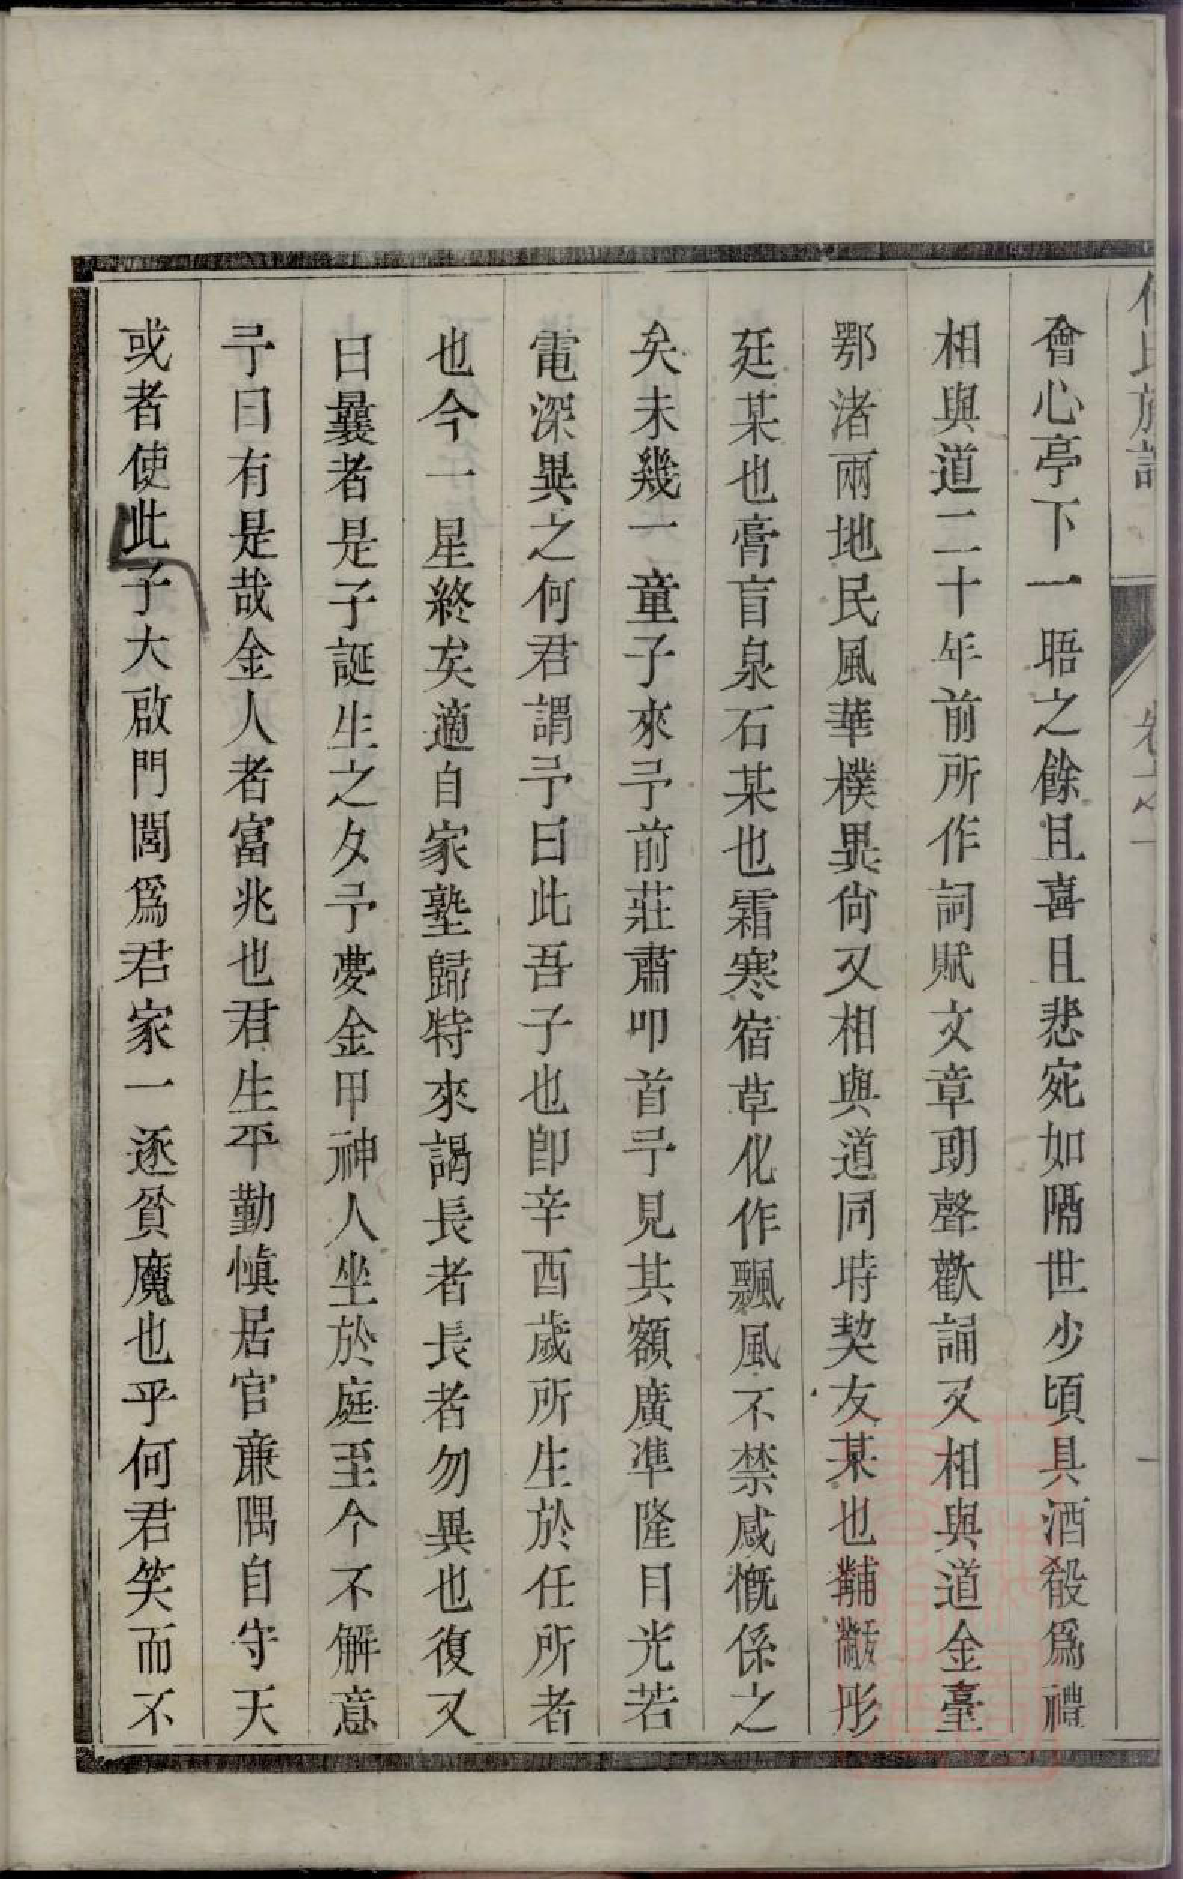 會心亭下一晤之餘且喜且悲宛如隔世少頃具酒殽爲禮
相與道二十年前所作詞賦文章朗聲歡誦又相與道金臺
鄂渚兩地民風華樸異尙又相與道同時契友某也黼黻彤
廷某也膏盲泉石某也霜寒宿草化作飄風不禁感慨係之
矣未幾一童子來予前莊肅叩首予見其額廣準隆目光若
電深異之何君謂予曰此吾子也卽辛酉歲所生於任所者
也今一星終矣適自家塾歸特來謁長者長者勿異也復又
曰曩者是子誕生之夕予夢金甲神人坐於庭至今不解意
予曰有是哉金人者富兆也君生平勤愼居官廉隅自守天
或者使此子大啟門閭爲君家一逐貧魔也乎何君笑而不